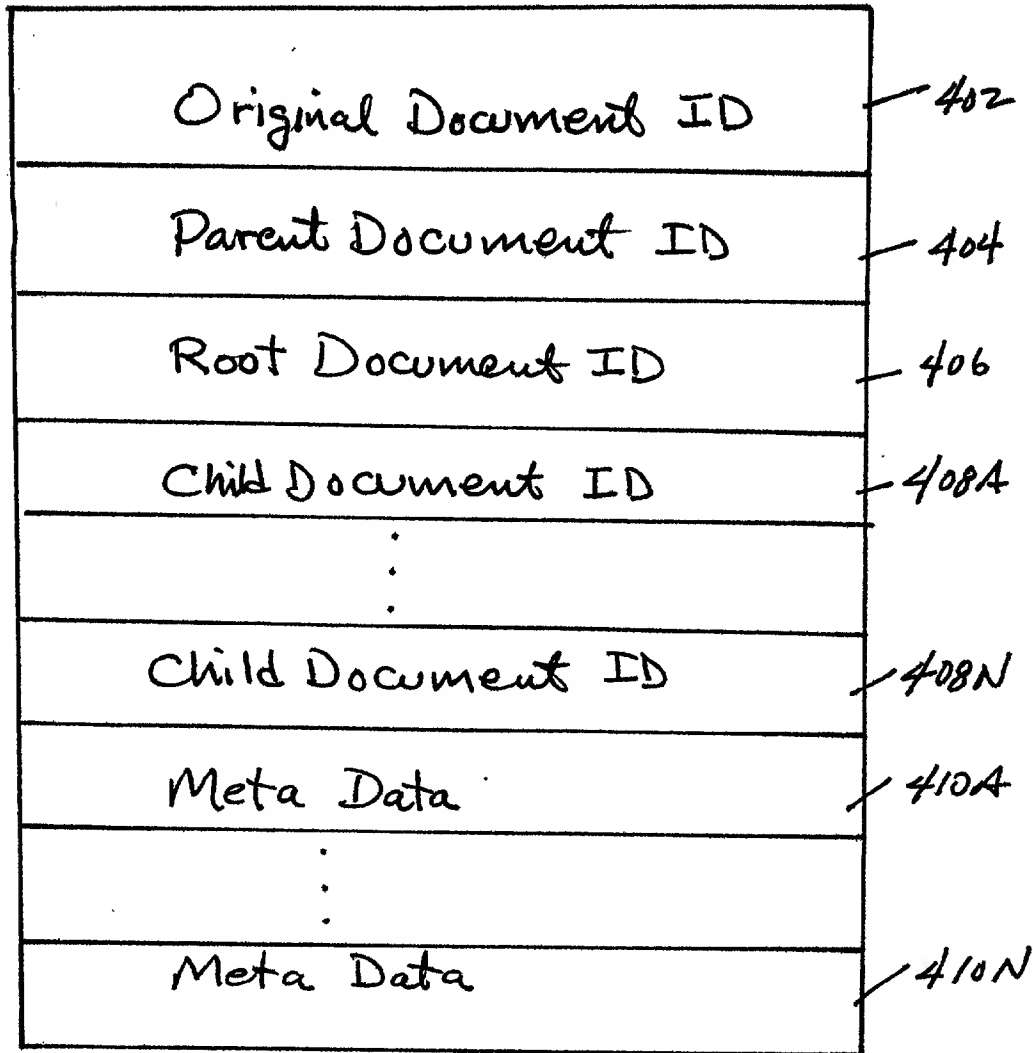 Original Document ID 402
Parent Document ID 404
Root Document ID 406
Child Document ID 408A
Child Document ID 408N
Meta Data 410A
Meta Data 410N